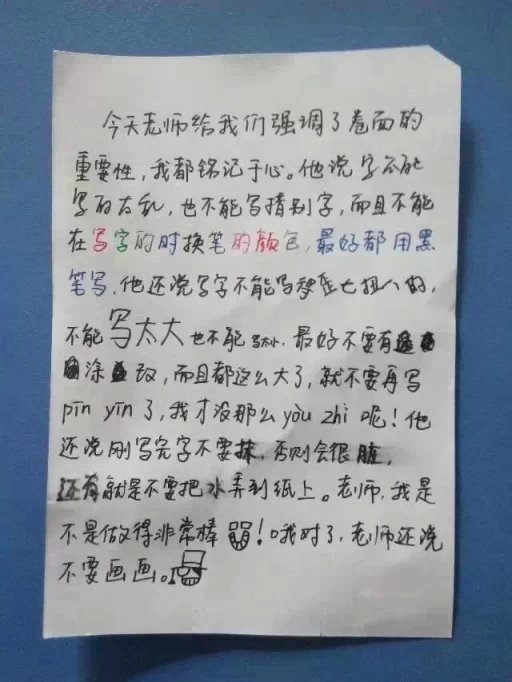 今天老师给我们强调了卷面的
重要性，我都铭记于心。他说字不能
写的太乱，也不能写揹别字，而且不能
在写字的时换笔的颜色，最好都用黑
笔写．他还说写字不能写歪七扭八的，
不能写太大也不能写太小．最好不要有
涂改，而且都这么大了，就不要再写
pīn yīn了，我才没那么yòu zhì呢！他
还说刚写完字不要抹．否则会很脏，
还有就是不要把水弄到纸上。老师，我是
不是做得非常棒！哦对了，老师还说
不要画画。